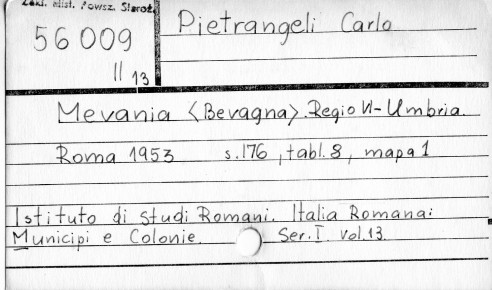 Zakł. Hist. Powsz. Staroż.
56 009
II 13
Pietrangeli Carlo
Mevania <Bevagna>. Regio VI - Umbria.
Roma 1953 s. 176, tabl. 8, mapa 1
Istituto di Studi Romani. Italia Romana:
Municipi e Colonie. Ser. I vol. 13.